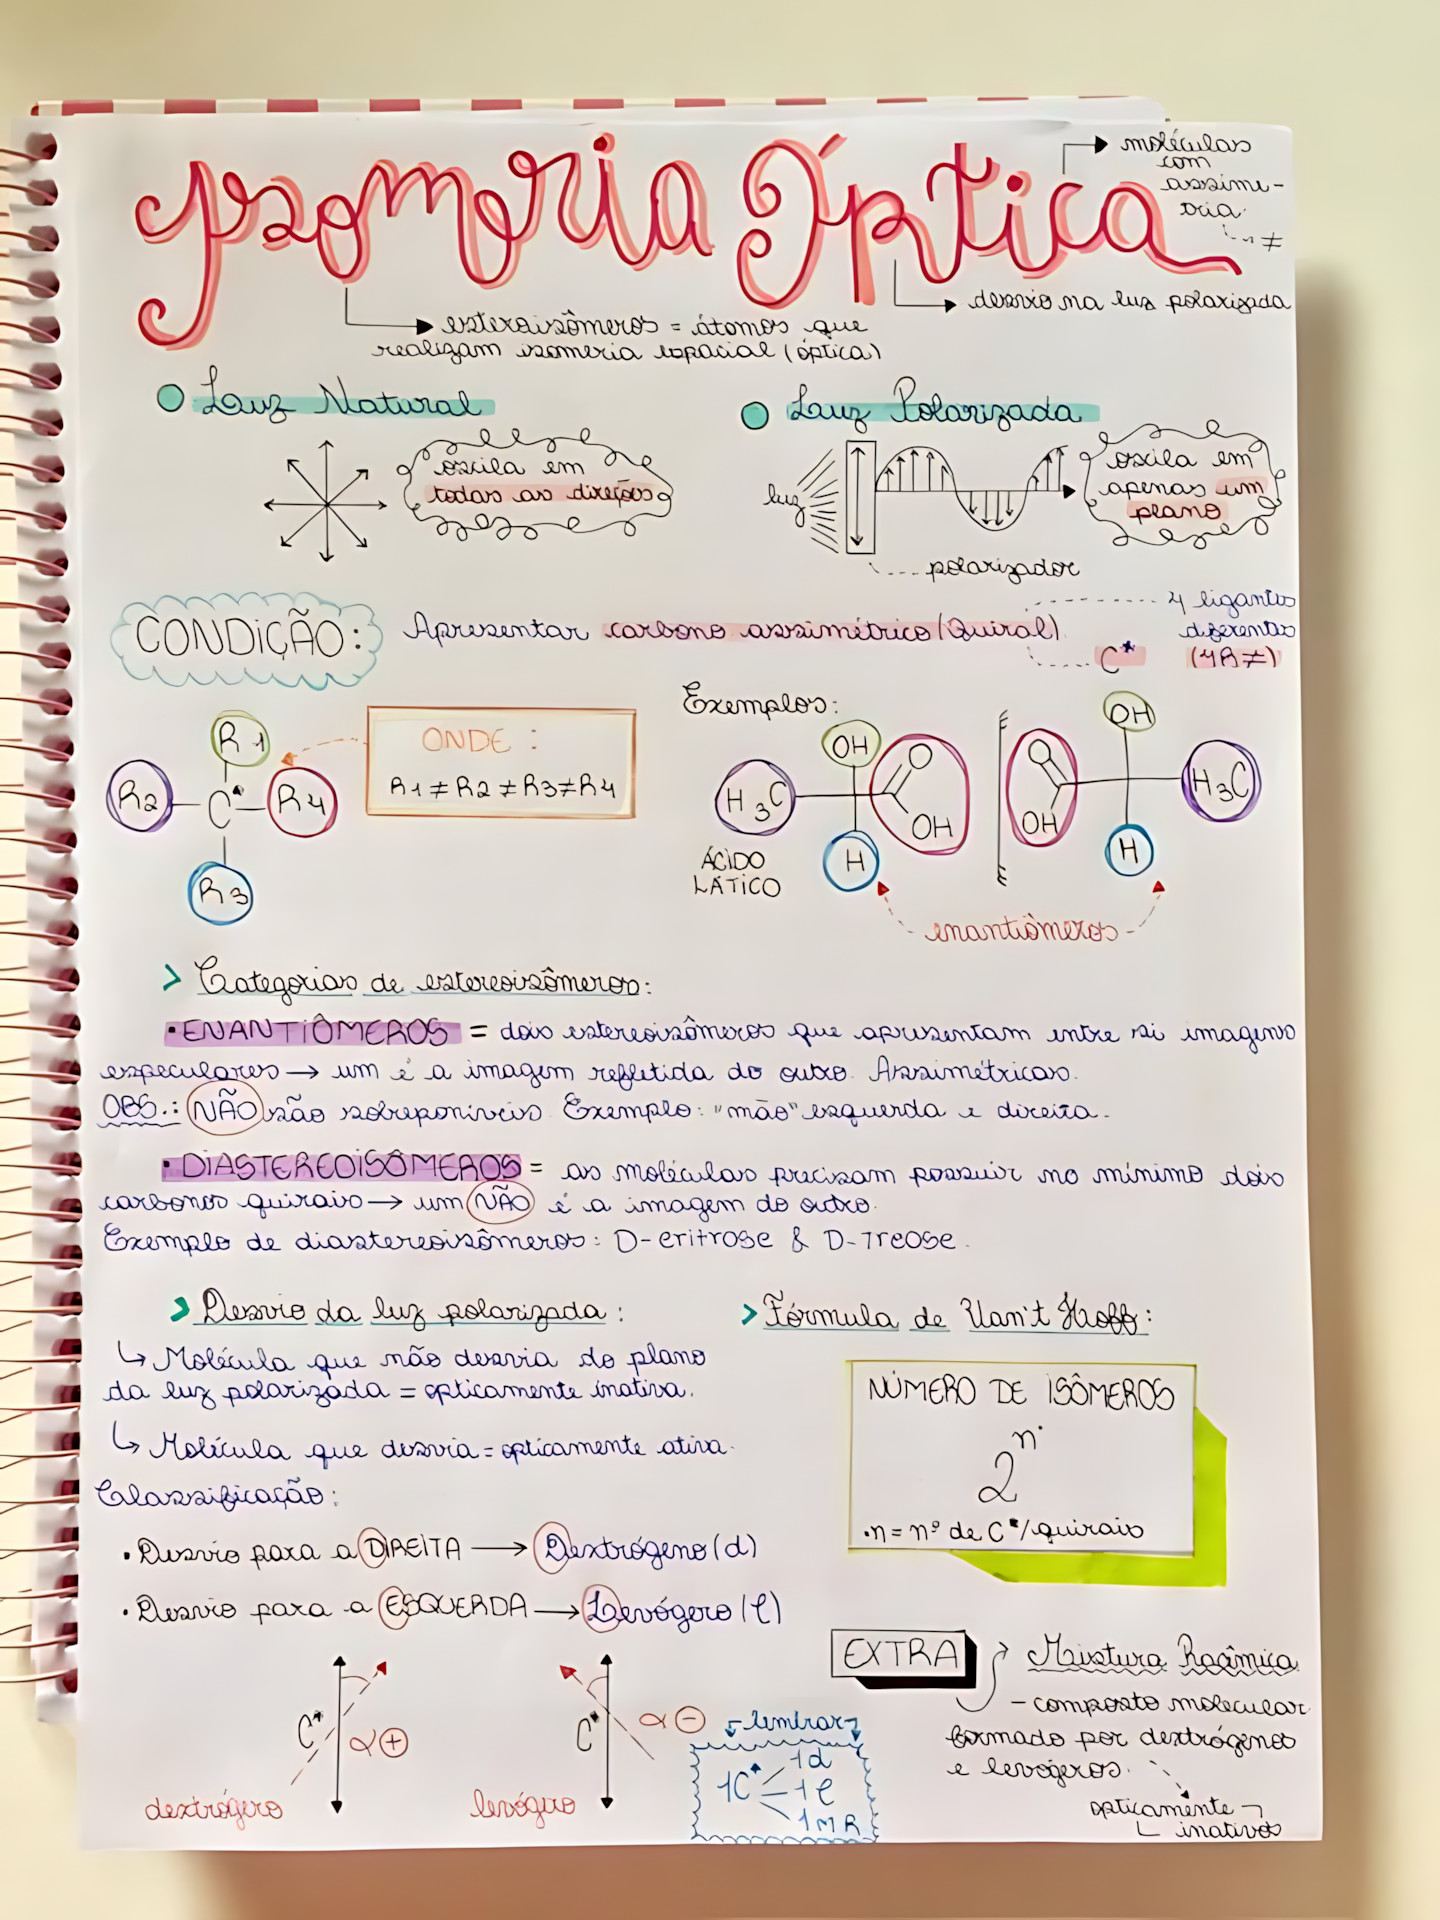 Isomeria Óptica
moléculas
com
assime-
tria.
≠
desvio na luz polarizada
esteroisômeros = átomos que
realizam isomeria espacial (óptica)
Luz Natural
oscila em
todas as direções
Luz Polarizada
luz
oscila em
apenas um
plano
polarizador
CONDIÇÃO:
Apresentar carbono assimétrico (Quiral)
4 ligantes
diferentes
(4R ≠)
C*
R1
R2 C* R4
R3
ONDE:
R1 ≠ R2 ≠ R3 ≠ R4
Exemplos:
OH
H3C
O
OH
H
ÁCIDO
LÁTICO
OH
O
OH
H3C
H
enantiômeros
> Categorias de estereoisômeros:
• ENANTIÔMEROS = dois estereoisômeros que apresentam entre si imagens
especulares → um é a imagem refletida do outro. Assimétricas.
OBS.: NÃO são sobreponíveis. Exemplo: "mão" esquerda e direita.
• DIASTEREOISÔMEROS = as moléculas precisam possuir no mínimo dois
carbonos quirais → um NÃO é a imagem do outro.
Exemplo de diastereoisômeros: D-eritrose & D-Treose.
> Desvio da luz polarizada:
↳ Molécula que não desvia do plano
da luz polarizada = opticamente inativa.
↳ Molécula que desvia = opticamente ativa.
Classificação:
• Desvio para a DIREITA → Dextrógeno (d)
• Desvio para a ESQUERDA → Levógero (l)
> Fórmula de Van't Hoff:
NÚMERO DE ISÔMEROS
2^n.
• n = nº de C*/quirais
C*
α +
dextrógero
C*
α -
levógiro
lembrar
1C*
1d
1l
1MR
EXTRA
Mistura Racêmica
- composto molecular
formado por dextrógenos
e levógeros.
opticamente
inativos